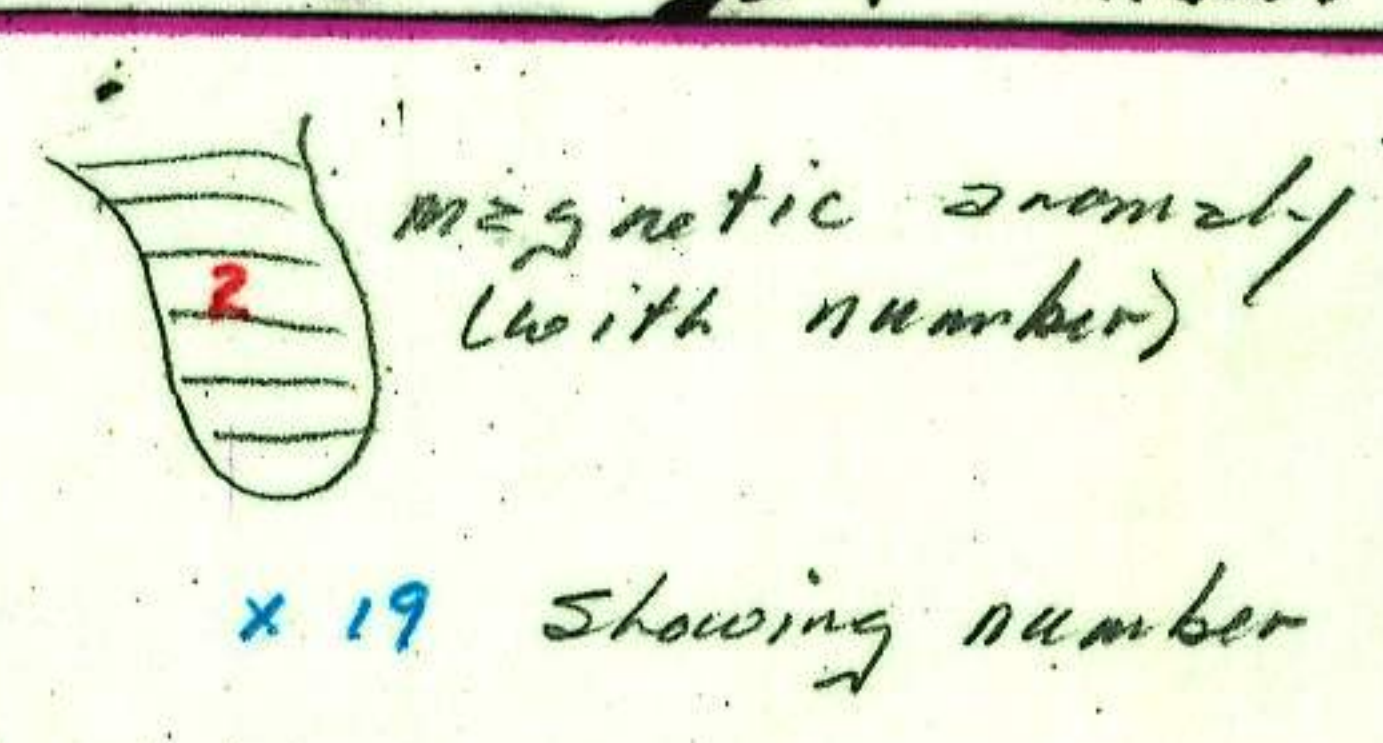 magnetic anomaly
2
(with number)
x 19 showing number